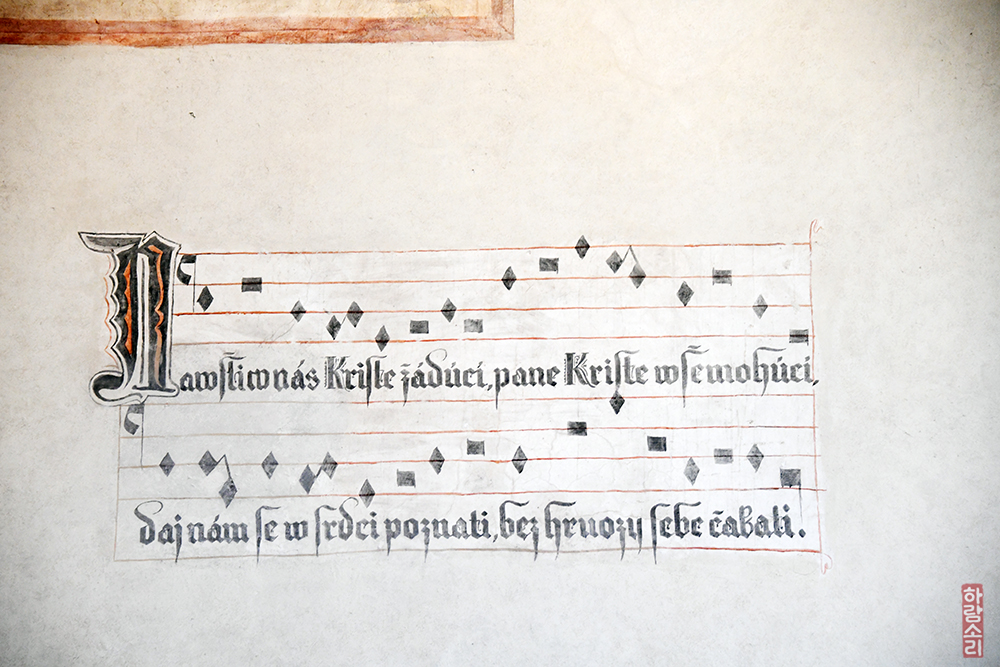 Nawštiw nás Kriste žádúcí, pane Kriste wšemohúcí,
daj nám se w srdci poznati, bez hruozy sebe čakati.
하람소리